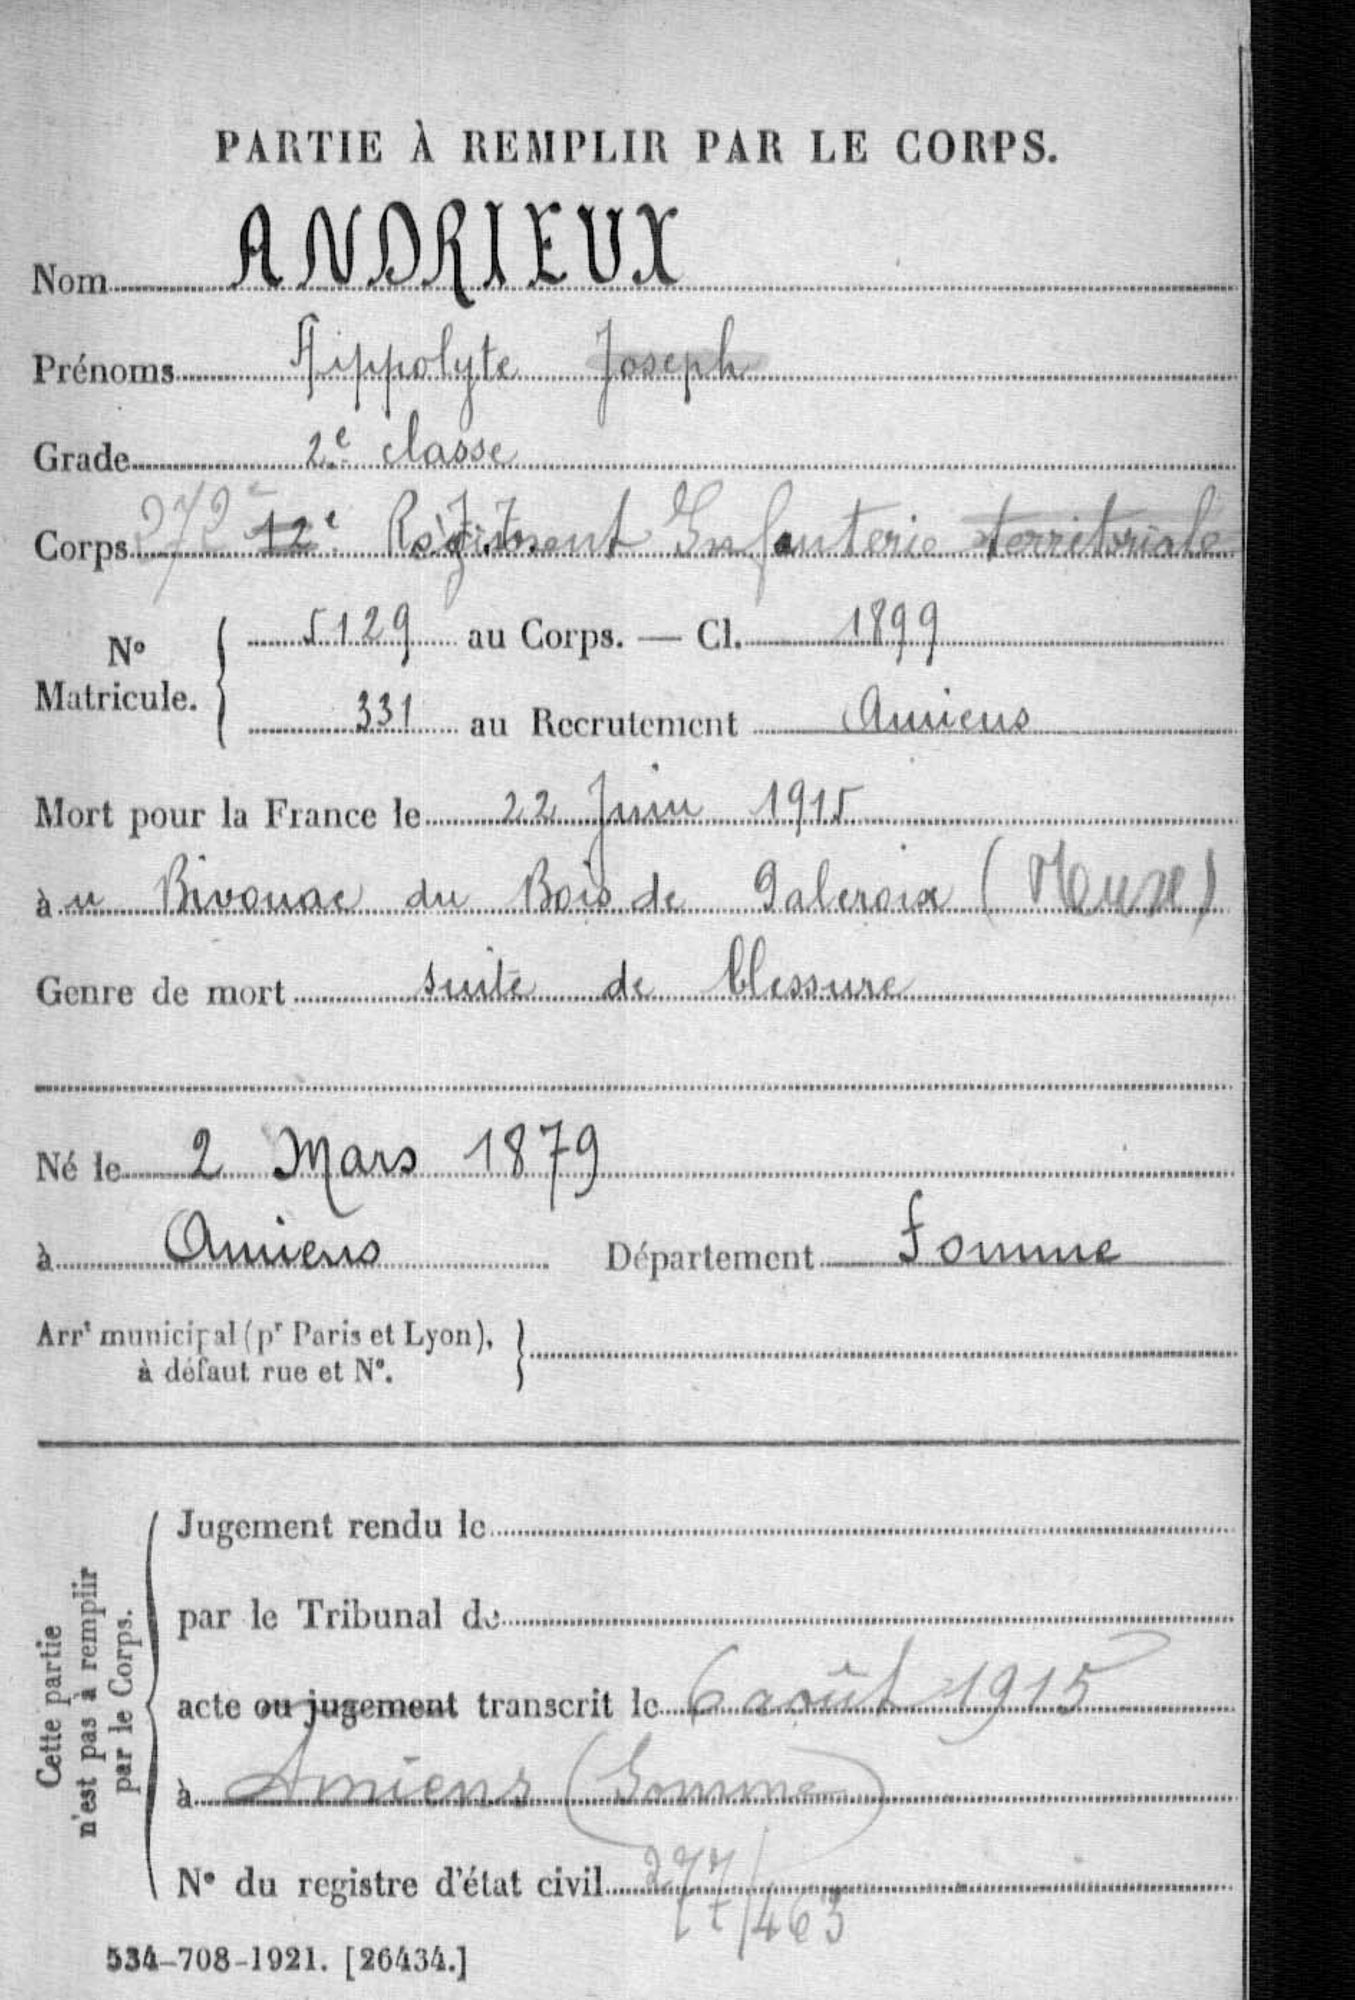 PARTIE À REMPLIR PAR LE CORPS.
Nom ANDRIEUX
Prénoms Hippolyte Joseph
Grade 2e classe
Corps 272e 12e Régiment Infanterie territoriale
N° Matricule. { 5129 au Corps. — Cl. 1899
331 au Recrutement Amiens
Mort pour la France le 22 Juin 1915
à u Bivouac du Bois de (Meuse)
Genre de mort suite de blessure
Né le 2 Mars 1879
à Amiens Département Somme
Arrt municipal (pr Paris et Lyon), }
à défaut rue et N°.
Cette partie
n'est pas à remplir
par le Corps.
Jugement rendu le
par le Tribunal de
acte ou jugement transcrit le 6 août 1915
à Amiens (Somme)
N° du registre d'état civil 277/463
534-708-1921. [26434.]